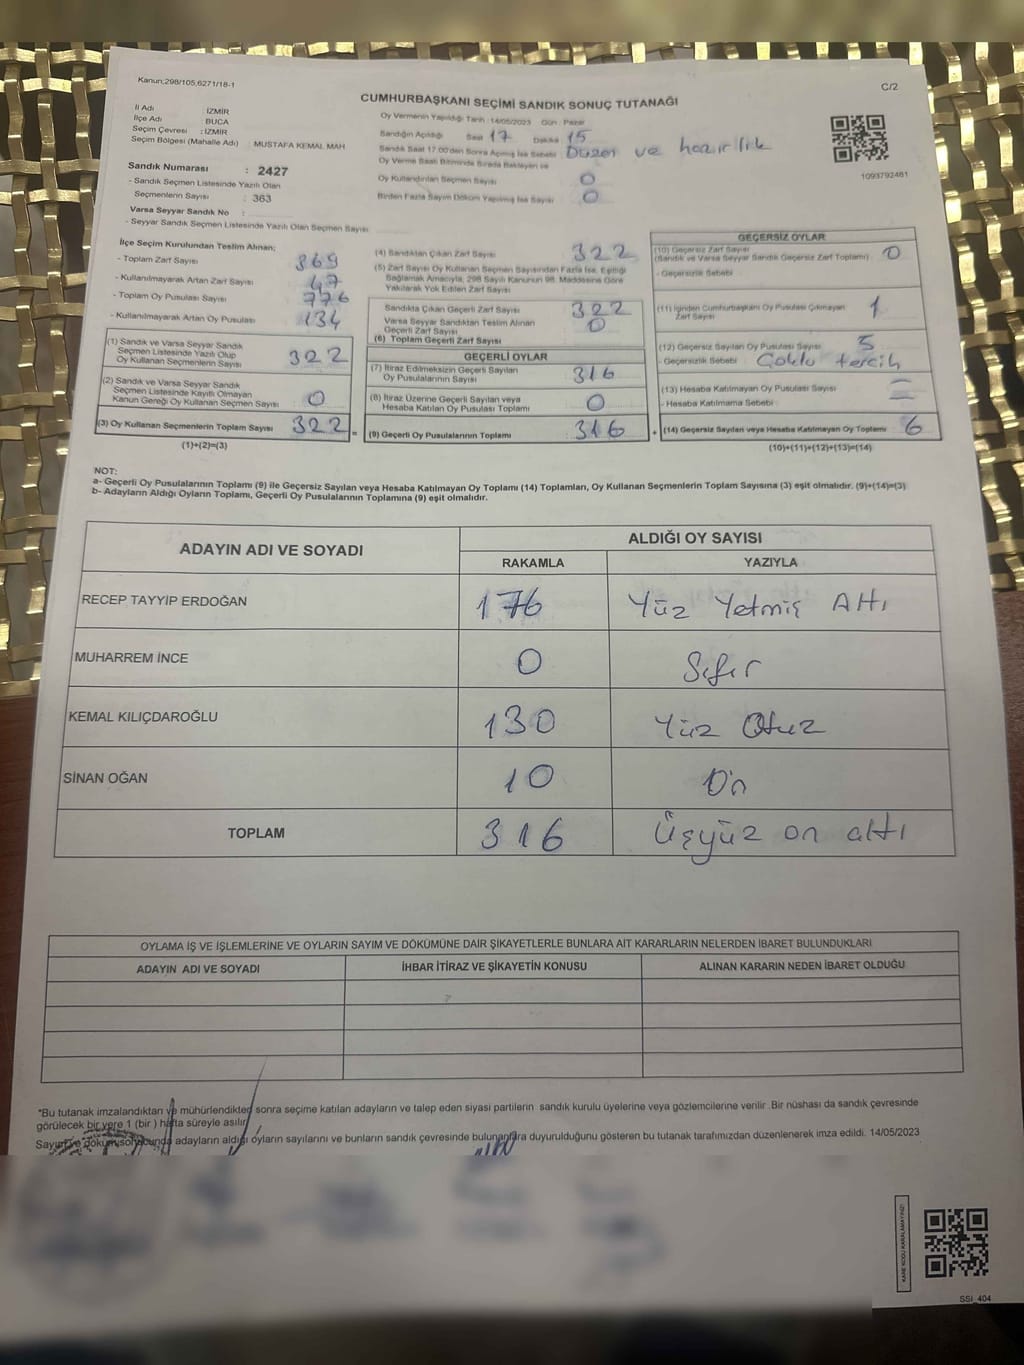 Kanun;298/105,6271/18-1
C/2
CUMHURBAŞKANI SEÇİMİ SANDIK SONUÇ TUTANAĞI
İl Adı : İZMİR
İlçe Adı : BUCA
Seçim Çevresi : İZMİR
Seçim Bölgesi (Mahalle Adı) : MUSTAFA KEMAL MAH
Oy Vermenin Yapıldığı Tarih : 14/05/2023 Gün : Pazar
Sandığın Açıldığı Saat 17 Dakika 15
Sandık Saat 17.00'den Sonra Açılmış İse Sebebi Düzen ve hazırlık
Oy Verme Saati Bitiminde Sırada Bekleyen ve
Oy Kullandırılan Seçmen Sayısı 0
Birden Fazla Sayım Döküm Yapılmış İse Sayısı 0
1093792461
Sandık Numarası : 2427
- Sandık Seçmen Listesinde Yazılı Olan
Seçmenlerin Sayısı : 363
Varsa Seyyar Sandık No :
- Seyyar Sandık Seçmen Listesinde Yazılı Olan Seçmen Sayısı
İlçe Seçim Kurulundan Teslim Alınan;
- Toplam Zarf Sayısı 369
- Kullanılmayarak Artan Zarf Sayısı 47
- Toplam Oy Pusulası Sayısı 776
- Kullanılmayarak Artan Oy Pusulası 134
(1) Sandık ve Varsa Seyyar Sandık
Seçmen Listesinde Yazılı Olup
Oy Kullanan Seçmenlerin Sayısı 322
(2) Sandık ve Varsa Seyyar Sandık
Seçmen Listesinde Kayıtlı Olmayan
Kanun Gereği Oy Kullanan Seçmen Sayısı 0
(3) Oy Kullanan Seçmenlerin Toplam Sayısı 322 =
(1)+(2)=(3)
(4) Sandıktan Çıkan Zarf Sayısı 322
(5) Zarf Sayısı Oy Kullanan Seçmen Sayısından Fazla İse, Eşitliği
Sağlamak Amacıyla, 298 Sayılı Kanunun 98. Maddesine Göre
Yakılarak Yok Edilen Zarf Sayısı
Sandıkta Çıkan Geçerli Zarf Sayısı 322
Varsa Seyyar Sandıktan Teslim Alınan
Geçerli Zarf Sayısı 0
(6) Toplam Geçerli Zarf Sayısı
GEÇERLİ OYLAR
(7) İtiraz Edilmeksizin Geçerli Sayılan
Oy Pusulalarının Sayısı 316
(8) İtiraz Üzerine Geçerli Sayılan veya
Hesaba Katılan Oy Pusulası Toplamı 0
(9) Geçerli Oy Pusulalarının Toplamı 316 +
GEÇERSİZ OYLAR
(10) Geçersiz Zarf Sayısı
(Sandık ve Varsa Seyyar Sandık Geçersiz Zarf Toplamı) 0
- Geçersizlik Sebebi
(11) İçinden Cumhurbaşkanı Oy Pusulası Çıkmayan
Zarf Sayısı 1
(12) Geçersiz Sayılan Oy Pusulası Sayısı 5
- Geçersizlik Sebebi Çoklu tercih
(13) Hesaba Katılmayan Oy Pusulası Sayısı
- Hesaba Katılmama Sebebi
(14) Geçersiz Sayılan veya Hesaba Katılmayan Oy Toplamı 6
(10)+(11)+(12)+(13)=(14)
NOT:
a- Geçerli Oy Pusulalarının Toplamı (9) ile Geçersiz Sayılan veya Hesaba Katılmayan Oy Toplamı (14) Toplamları, Oy Kullanan Seçmenlerin Toplam Sayısına (3) eşit olmalıdır. (9)+(14)=(3)
b- Adayların Aldığı Oyların Toplamı, Geçerli Oy Pusulalarının Toplamına (9) eşit olmalıdır.
ADAYIN ADI VE SOYADI
ALDIĞI OY SAYISI
RAKAMLA YAZIYLA
RECEP TAYYİP ERDOĞAN 176 Yüz Yetmiş Altı
MUHARREM İNCE 0 Sıfır
KEMAL KILIÇDAROĞLU 130 Yüz Otuz
SİNAN OĞAN 10 On
TOPLAM 316 Üçyüz on altı
OYLAMA İŞ VE İŞLEMLERİNE VE OYLARIN SAYIM VE DÖKÜMÜNE DAİR ŞİKAYETLERLE BUNLARA AİT KARARLARIN NELERDEN İBARET BULUNDUKLARI
ADAYIN ADI VE SOYADI İHBAR İTİRAZ VE ŞİKAYETİN KONUSU ALINAN KARARIN NEDEN İBARET OLDUĞU
*Bu tutanak imzalandıktan ve mühürlendikten sonra seçime katılan adayların ve talep eden siyasi partilerin sandık kurulu üyelerine veya gözlemcilerine verilir. Bir nüshası da sandık çevresinde
görülecek bir yere 1 (bir) hafta süreyle asılır.
Sayım ve döküm sonucunda adayların aldığı oyların sayılarını ve bunların sandık çevresinde bulunanlara duyurulduğunu gösteren bu tutanak tarafımızdan düzenlenerek imza edildi. 14/05/2023
KARE KODU KARALAMAYINIZ!
SSİ_404